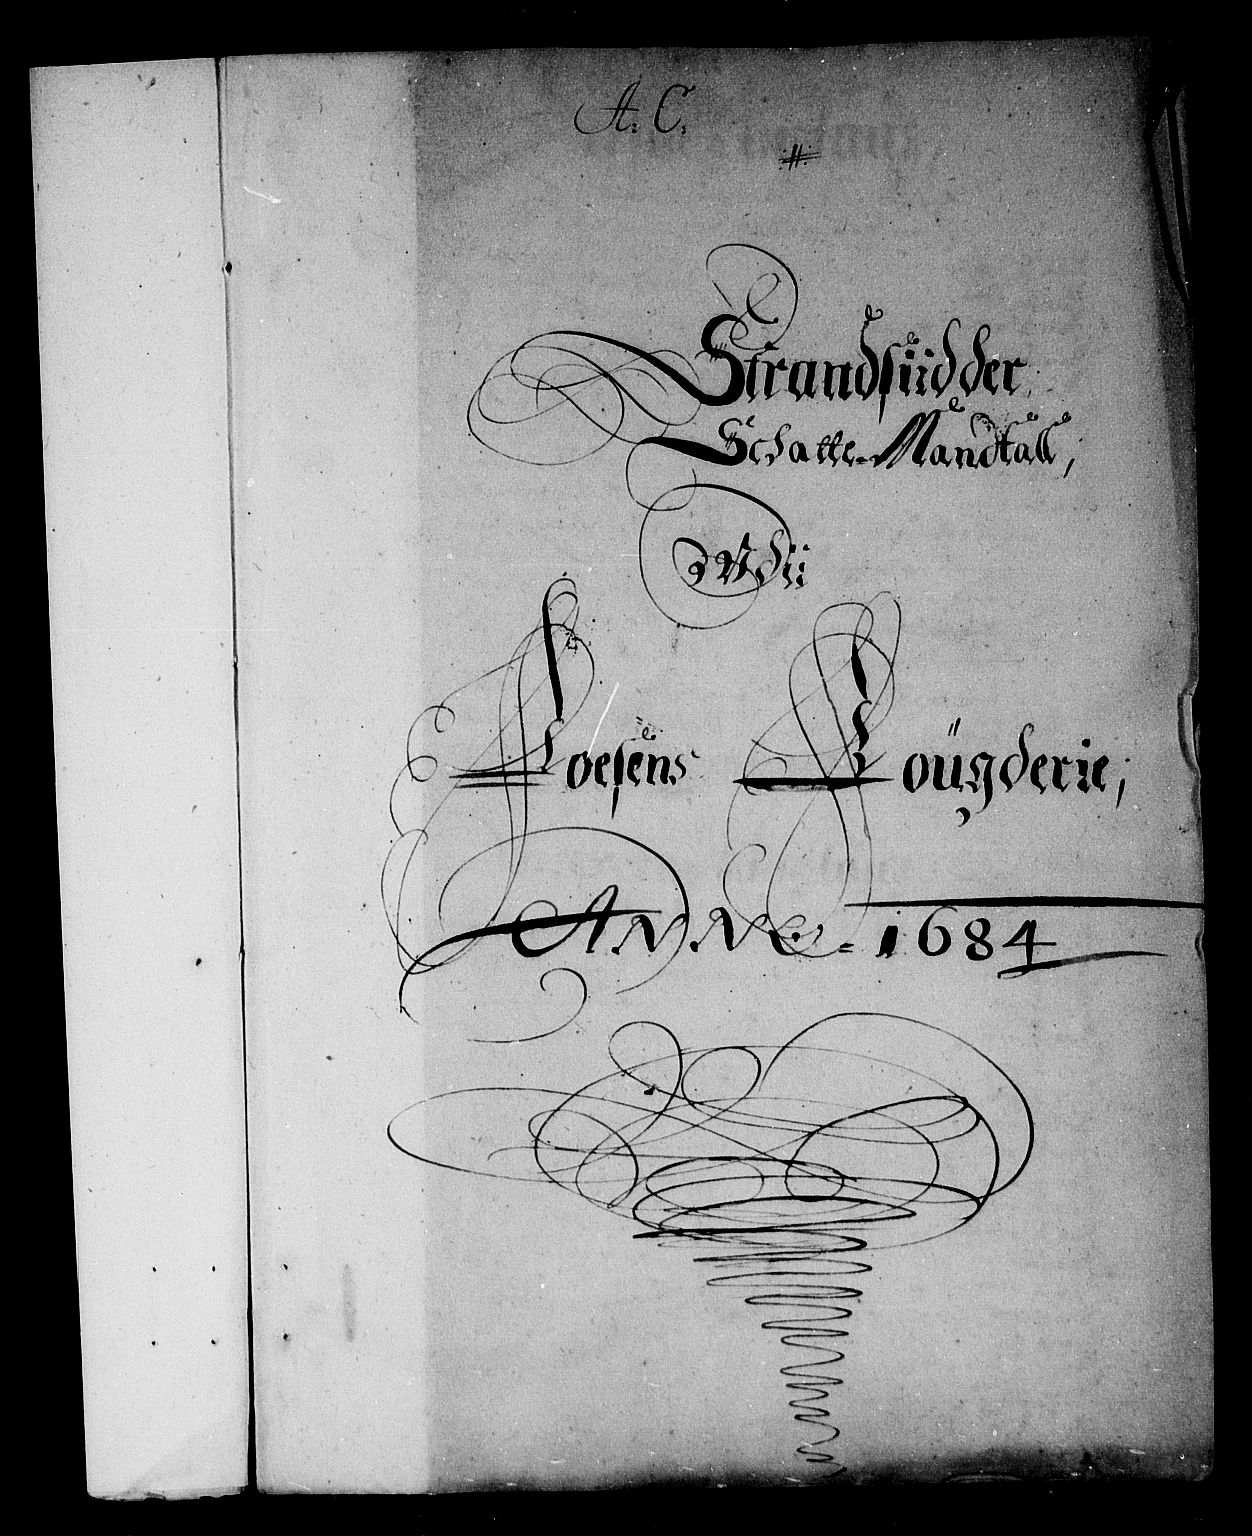 A: C:
#
Strandsiidder
Schatte-Mandtall,
Foesens Foügderie,
ANNO. 1684